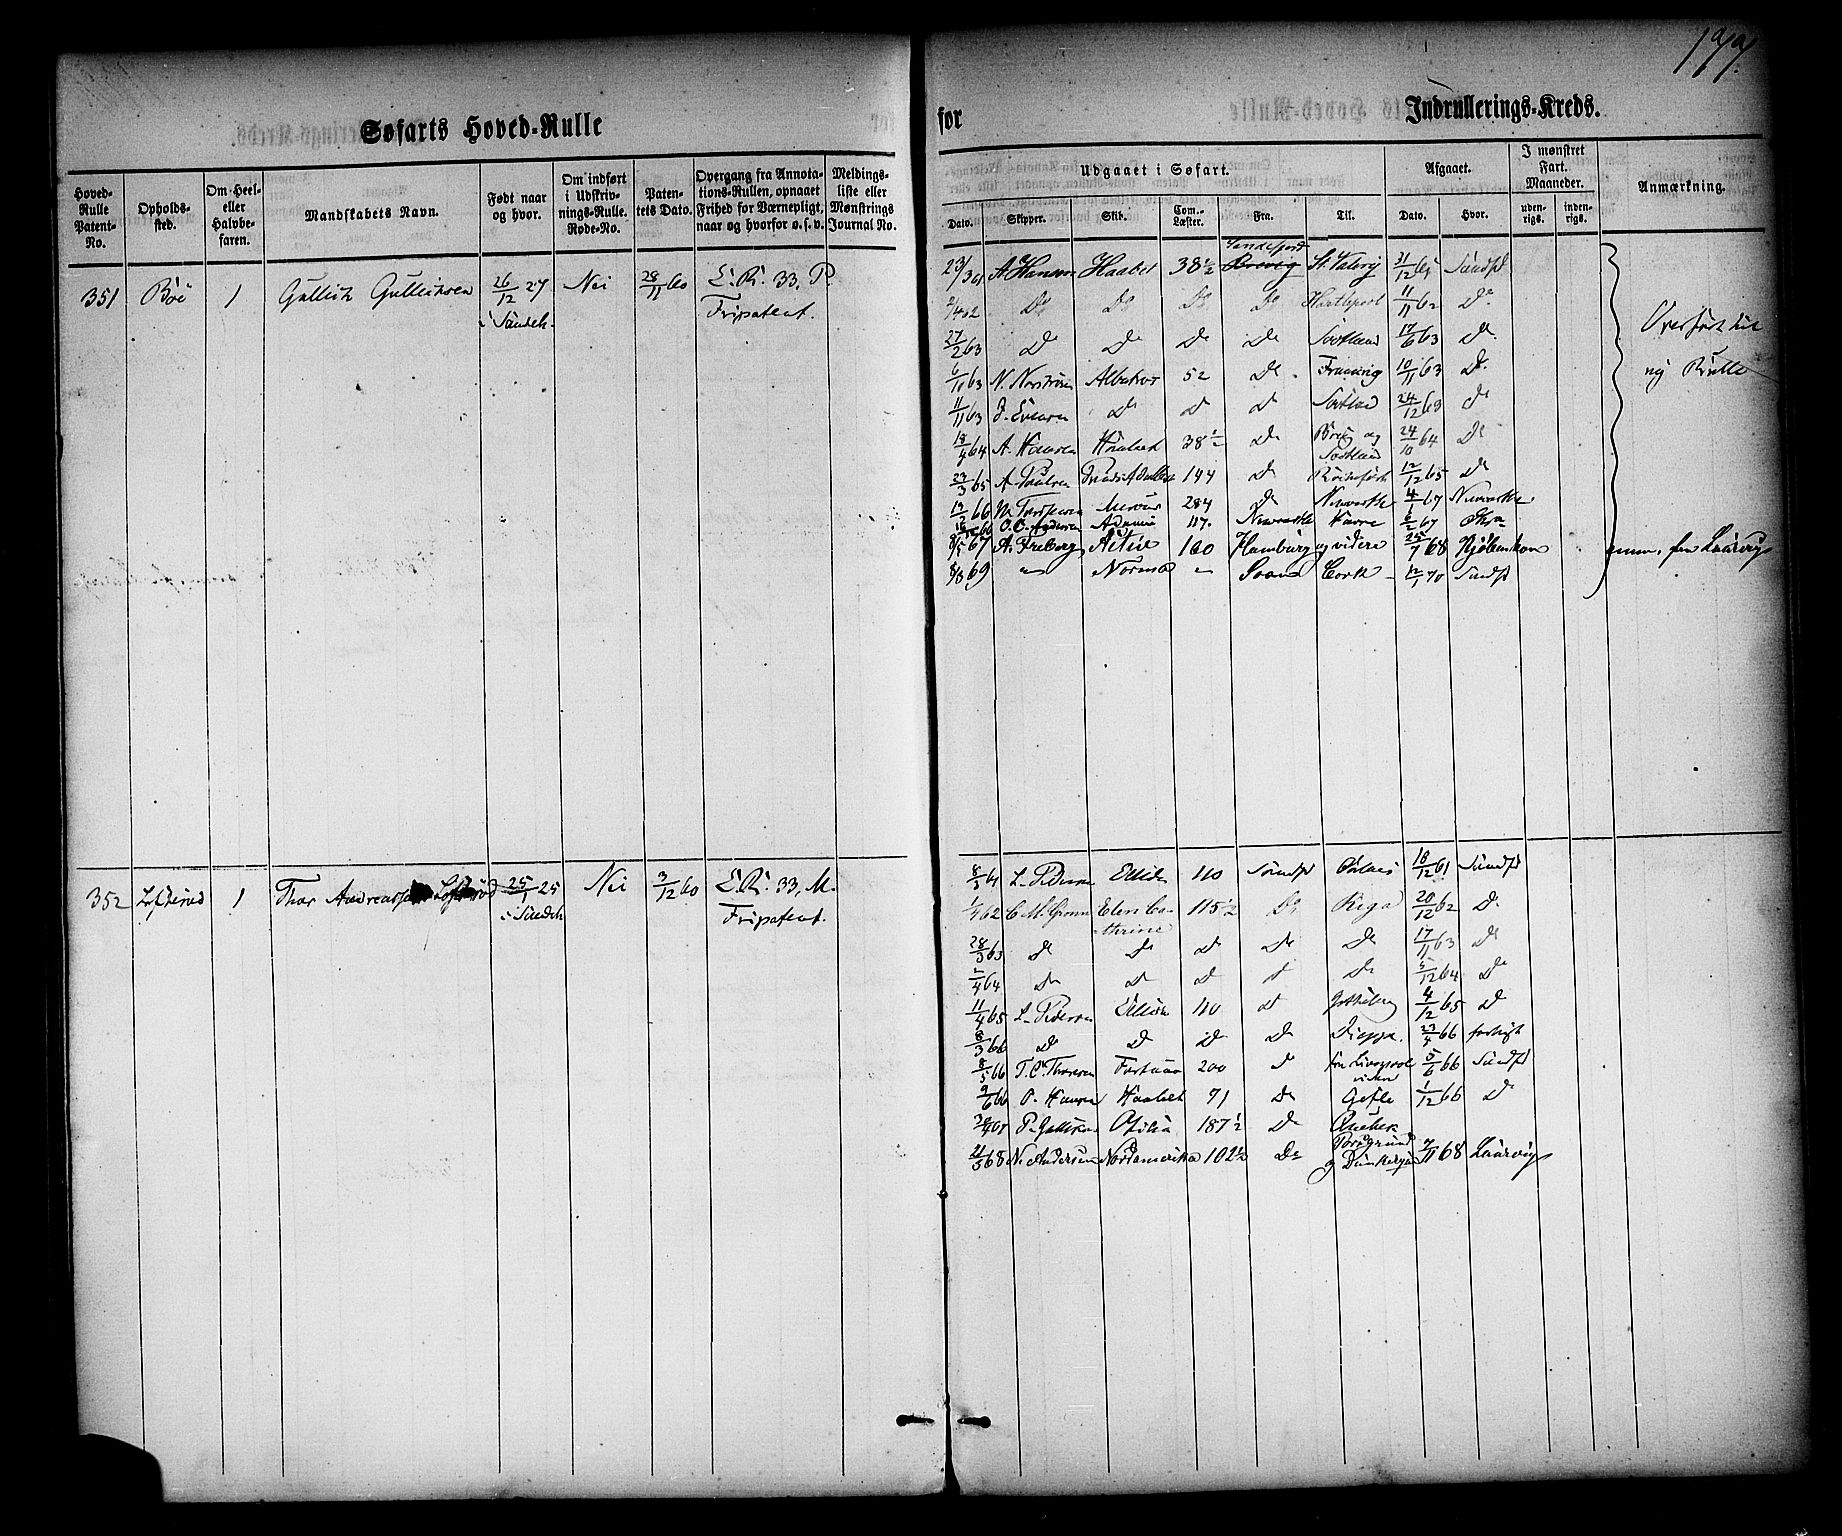 177.
Søfarts Hoved-Rulle
for
Indrullerings-Kreds.
Hoved-Rulle Patent-No.
Opholds-sted.
Om Heel- eller Halvbe-faren.
Mandskabets Navn.
Født naar og hvor.
Om indført i Udskriv-nings-Rulle. Rode-No.
Paten-tets Dato.
Overgang fra Annota-tions-Rullen, opnaaet Frihed for Værnepligt, naar og hvorfor o. s. v.
Meldings-liste eller Mønstrings Journal No.
Udgaaet i Søfart.
Afgaaet.
I mønstret Fart. Maaneder.
Anmærkning.
Dato. Skipper. Skib. Com.-Læster. Fra. Til. Dato. Hvor. uden-rigs. inden-rigs.
351 Böe 1 Gullich Gullichsen 26/12 27 Nei 28/11 60 E. R. 33, P.
i Sandeh. Fripatent.
Sandefjord
23/3 61 A Hansen Haabet 38 1/2 St. Valery 31/12 61 Sandfd
2/4 62 Do Do Do Do Hartlepool 11/11 62 Do
27/2 63 Do Do Do Do Scotland 17/6 63 Do
Overført til
ny Rulle
6/10 63 N. Albatros 52 Do 10/11 63 Do
11/11 63 Do Do Do 24/12 63 Do
18/4 64 A. Hansen Haabet 38 1/2 Do og 24/10 64 Do
Scotland
27/3 65 A. Paulsen 144 Do 12/12 65 Do
284 Do Newcastle 4/2 67 Newcastle
O. C. Andersen 117. Newcastle Havre
8/5 67 A. Freberg Active 160 Hamburg og videre 25/7 68 Kjøbenhavn anm. fra Laurvig
8/8 69 " Norma " Cork 12/1 70 Sandfd
352 1 Thor Andreassen 25/1 25 Nei 3/12 60 E. R. 33, M.
i Sandeh Fripatent.
8/3 61 L. Pedersen Ellida 110 Sandfd 18/12 61 Sandfd
1/4 62 C. M. Elen Ca- 115 1/2 Do Riga 20/12 62 Do
thrine
28/3 63 Do Do Do Do Do 17/11 63 Do
2/4 64 Do Do Do Do Do 5/12 64 Do
11/4 65 L. Pedersen Ellida 110 Do 4/12 65 Do
8/3 66 Do Do Do Do Dieppe. 27/4 66
8/5 66 T. C. Thoresen Fortuna 200 Do fra Liverpool 5/6 66 Sandfd
9/6 66 P. Hansen Haabet 71 Do Gefle 1/12 66 Do
P. Gullichsen Otilia 187 1/2 Do Quebek
Porsgrund
21/3 68 N. Andersen Nordamerika 102 1/2 Do og Dünkerque 7/11 68 Laurvig